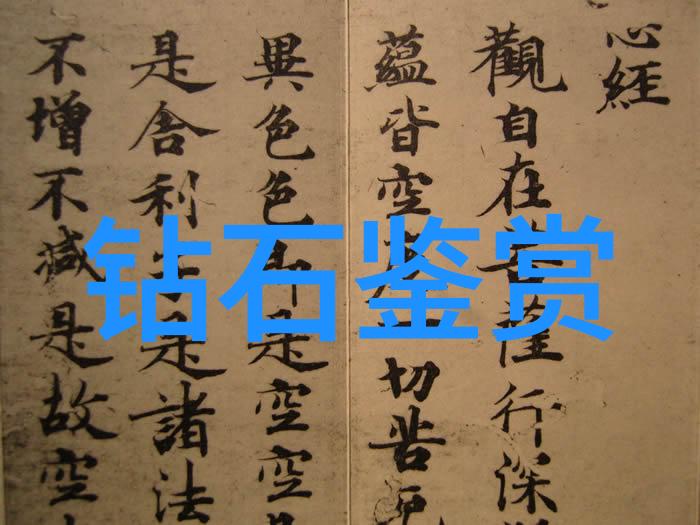 心經
觀自在菩薩行深
蘊皆空度一切苦厄
異色色即是空空是
是舍利子是諸法
不增不減是故空
钻石鉴赏